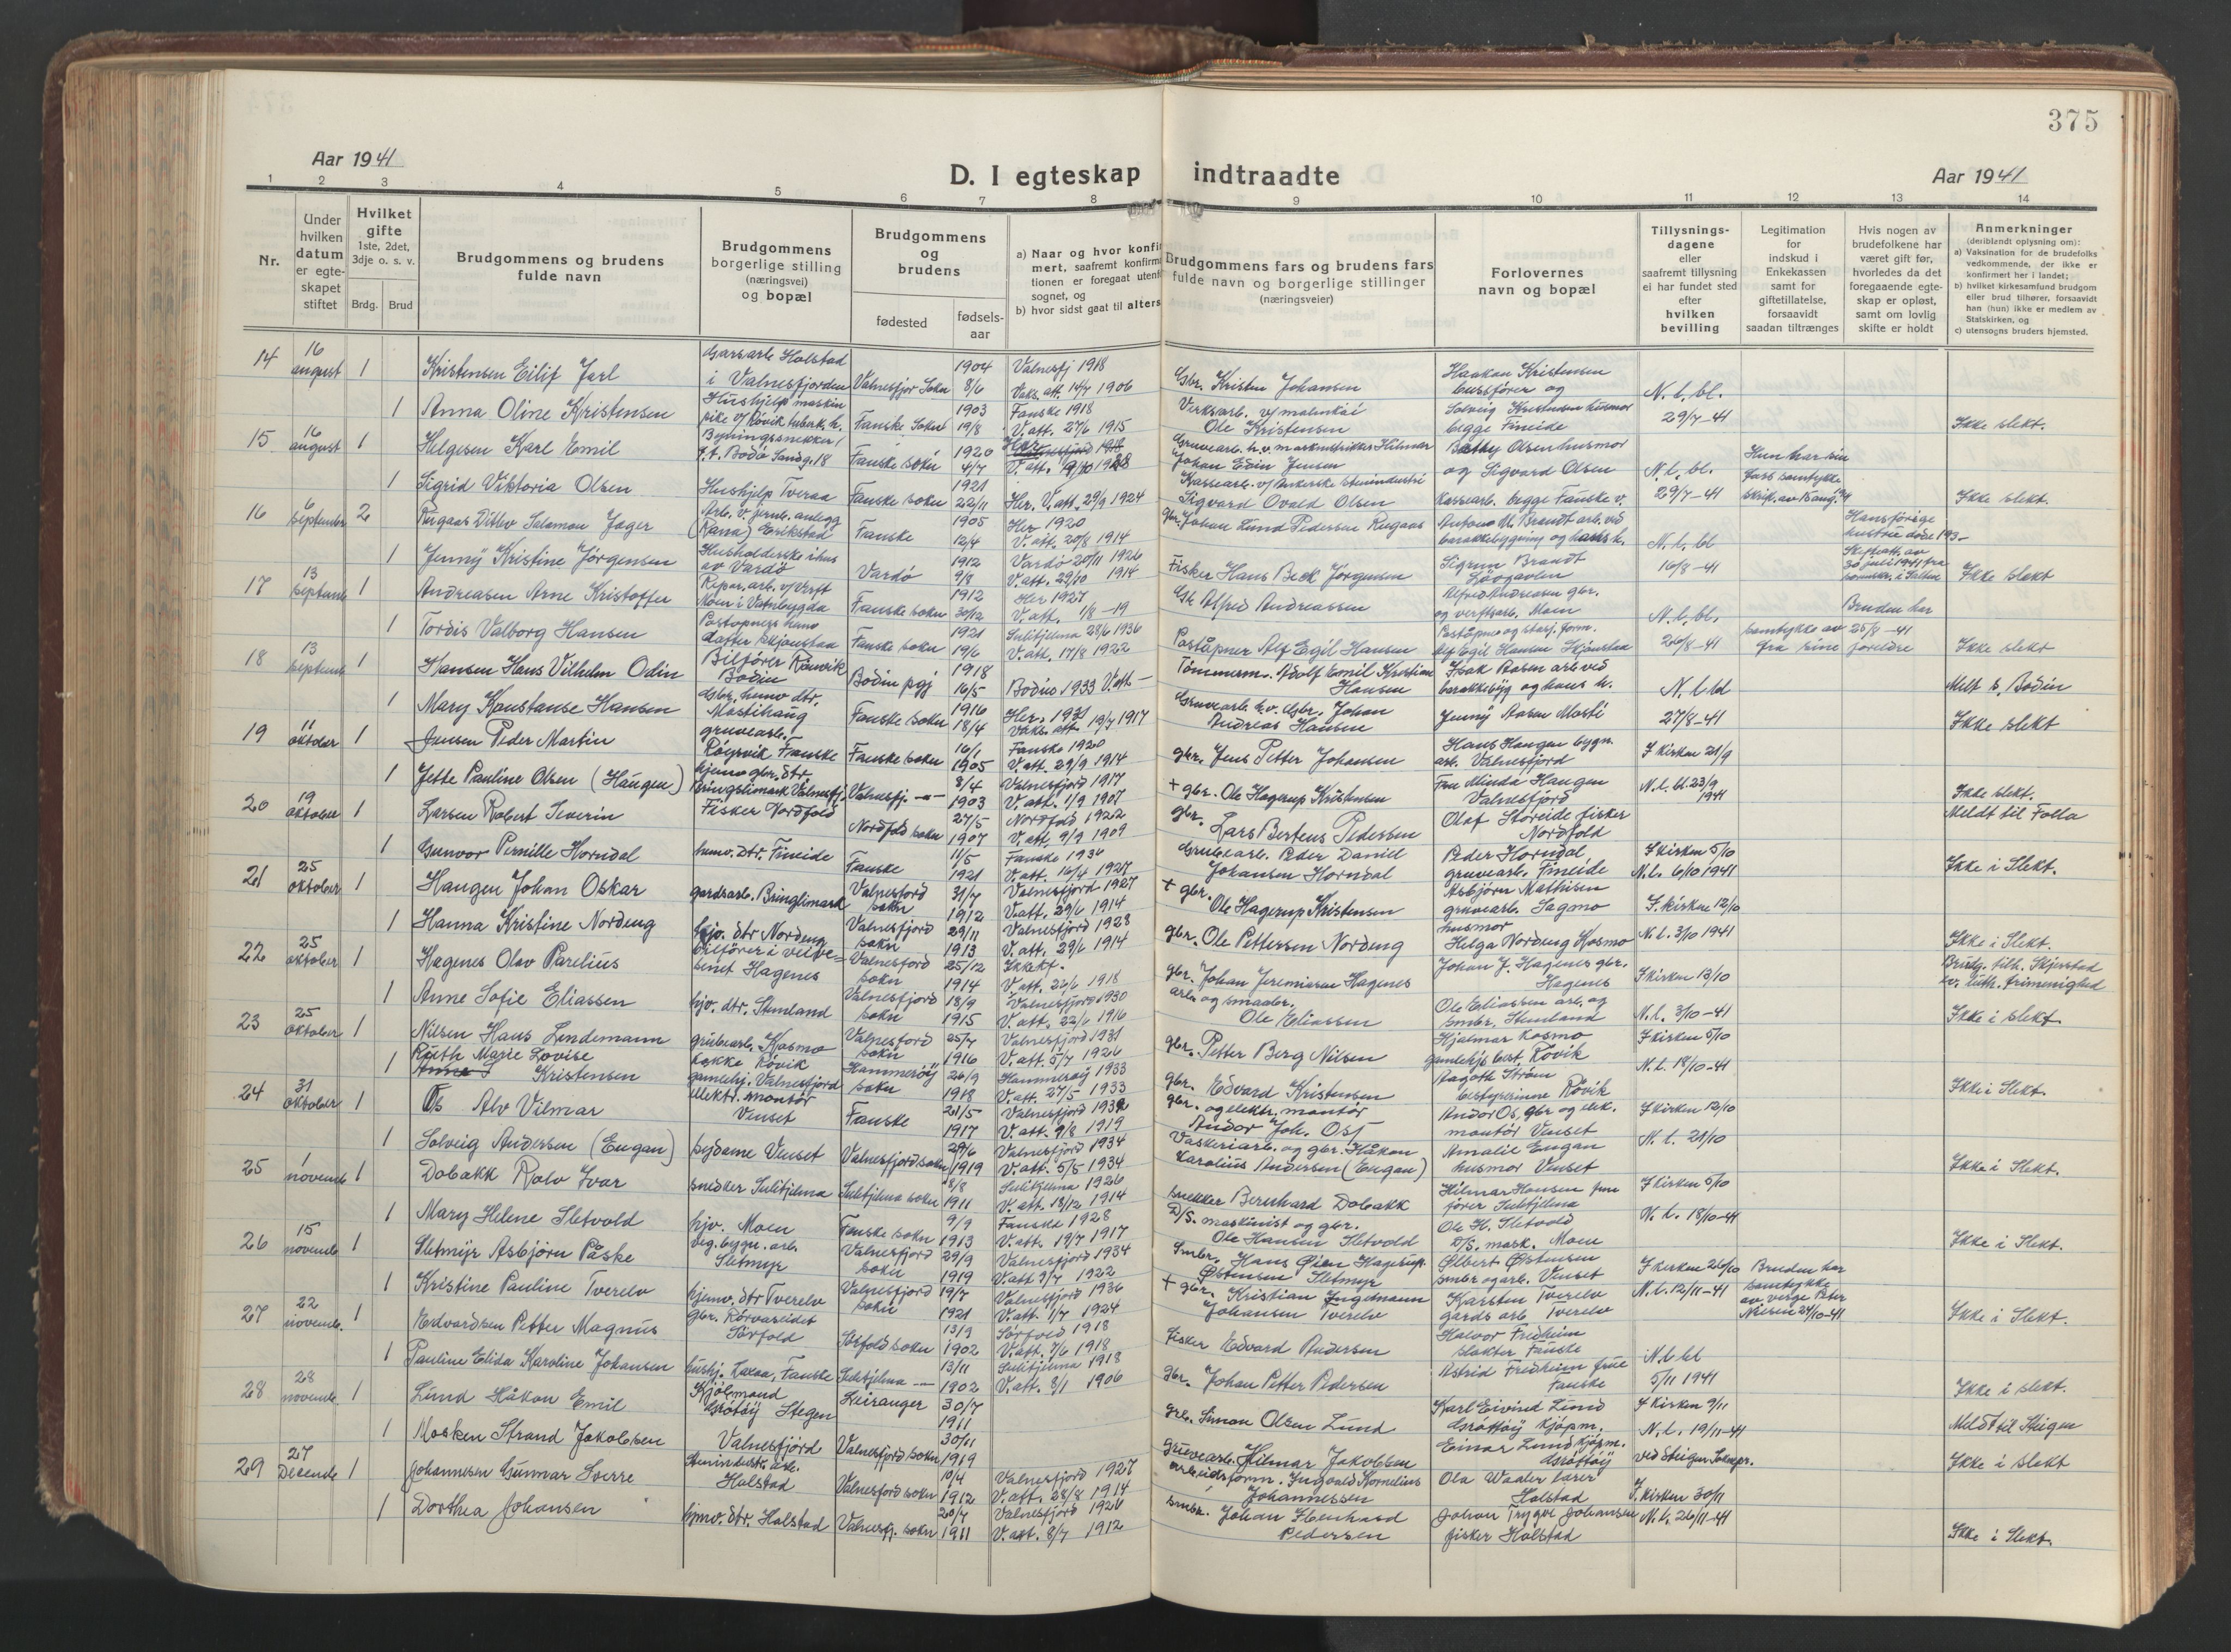 375
Aar 1941
D. I egteskap indtraadte
Aar 1941
1 2 3 4 5 6 7 8 9 10 11 12 13 14
Nr.
Under hvilken datum er egteskapet stiftet
Hvilket gifte 1ste, 2det, 3dje o. s. v.
Brdg. Brud
Brudgommens og brudens fulde navn
Brudgommens borgerlige stilling (næringsvei) og bopæl
Brudgommens og brudens
fødested
fødselsaar
a) Naar og hvor konfir
mert, saafremt konfirma
tionen er foregaat utenf
sognet, og
b) hvor sidst gaat til alters
Brudgommens fars og brudens fars fulde navn og borgerlige stillinger (næringsveier)
Forlovernes navn og bopæl
Tillysningsdagene eller saafremt tillysning ei har fundet sted efter hvilken bevilling
Legitimation for indskud i Enkekassen samt for giftetillatelse, forsaavidt saadan tiltrænges
Hvis nogen av brudefolkene har været gift før, hvorledes da det foregaaende egteskap er opløst, samt om lovlig skifte er holdt
Anmerkninger
(deriblandt oplysning om):
a) Vaksination for de brudefolks vedkommende, der ikke er konfirmert her i landet;
b) hvilket kirkesamfund brudgom eller brud tilhører, forsaavidt han (hun) ikke er medlem av Statskirken, og
c) utensogns bruders hjemsted.
14 16 august 1 Kristensen Eilif Jarl Holstad i Valnesfjorden Valnesfjor Sokn 1904 8/6 Valnesfj 1918 Vaks. att. 14/7 1906 Gbr. Kristen Johansen Haakon Kristensen bussfører og N. l. bl.
1 Anna Oline Kristensen Hushjelp maskin pike v/ Røvik tuberk. h. Fauske Sokn 1903 19/8 Fauske 1918 V. att. 27/6 1915 Verksarb. v/ malmkai Ole Kristensen Solveig Kristensen husmor begge Fineide 29/7-41 Ikke slekt.
15 16 august 1 Helgesen Karl Emil Bygningssnekker f.t. Bodø Sandg. 18 Fauske sokn 1920 4/7 Her Johan Edin Jensen Bethy Olsen husmor og Sigvard Olsen N. l. bl. Hun har sin fars samtykke
1 Sigrid Viktoria Olsen Hushjelp Tveraa Fauske sokn 1921 22/11 Her. V. att. 29/9 1924 Sigvard Ovald Olsen begge Fauske v. 29/7-41 Ikke slekt.
16 6 September 2 Rugaas Ditlev Salamon Jager Arb. v. jernb. anlegg Erikstad Fauske 1905 12/4 Her 1920 V. att. 20/8 1914 Gbr. Johan Lund Pedersen Rugaas Antone M. Brandt arb. ved barakkebygning og hans h. N. l. bl
1 Jenny Kristine Jørgensen Husholderske i hus av Vardø Vardø 1912 9/8 Vardø 20/11 1926 V. att. 29/10 1914 Fisker Hans Beck Jørgensen Sigrun Brandt Løvgavlen 16/8-41 Hans forrige hustru døde 193- Skifteatt. av 30 juli 1941 fra Ikke slekt
17 13 Septemb 1 Andreasen Arne Kristoffer Repar. arb. v/ Verft Moen i Vatnbygda Fauske sokn 1912 30/12 Her 1927 V. att. 1/8-19 Gbr Alfred Andreassen Alfred Andreasen gbr. og verftsarb. Moen N. l. bl. Bruden har
1 Tordis Valborg Hansen Postopners hjemv datter Skjønstaa Fauske sokn 1921 19/6 Sulitjelma 28/6 1936 V. att. 17/8 1922 Poståpner Alf Egil Hansen Poståpner og stasj. form. Alf Egil Hansen Skjønstaa 26/8-41 samtykke av 25/8-41 fra sine foreldre Ikke slekt
18 13 Septemb 1 Hansen Hans Vilhelm Odin Bilfører Rønvik Bodin Bodin pgj 1918 16/5 Bodin 1933 V. att. - Tømmerm. Adolf Emil Kristian Hansen Isak Aasen arb ved barakkebyg og hans h. N. l. bl Meldt s. Bodin
1 Mary Konstanse Hansen Gbr. hjemv dtr. Mostihaug Fauske sokn 1916 18/4 Her. 1931 Vaks. att. 19/7 1917 Gruvearb. h.v. Gbr. Johan Andreas Hansen Jenny Aasen Mosti 27/8-41 Ikke slekt
19 11 oktober 1 Jensen Peder Martin gruvearb. Røysvik Fauske Fauske sokn 16/1 1905 Fauske 1920 V. att. 29/9 1914 gbr. Jens Petter Johansen Hans Haugen bygn. arb. Valnesfjord I kirken 21/9
1 Jette Pauline Olsen (Haugen) hjemv gbr. dtr. Bringslimark Valnesfj. Valnesfj. -"- 8/4 1903 Valnesfjord 1917 V. att. 1/9 1907 + gbr. Ole Hagerup Kristensen Fru Minda Haugen Valnesfjord N. l. bl. 23/9 1941 Ikke slekt.
20 19 oktober 1 Larsen Robert Severin Fisker Nordfold Nordfold sokn 27/5 1907 Nordfold 1922 V. att. 9/9 1909 gbr. Lars Berteus Pedersen Olaf Storeide fisker Nordfold Meldt til Folla
1 Gunvor Pernille Horndal hjemv. dtr. Fineide Fauske 11/5 1921 Fauske 1934 V. att. 16/4 1927 Gruvearb. Peder Daniel Johansen Horndal Peder Horndal gruvearb. Fineide I kirken 5/10 N. l. 6/10 1941 Ikke i Slekt.
21 25 oktober 1 Haugen Johan Oskar gardsarb. Bringslimark Valnesfjord sokn 31/7 1912 Valnesfjord 1927 V. att. 29/6 1914 + gbr. Ole Hagerup Kristensen Asbjørn Mathisen gruvearb. Sagmo I. kirken 12/10
1 Hanna Kristine Nordeng hjv. dtr Nordeng Valnesfjord sokn 29/11 1913 Valnesfjord 1928 V. att. 29/6 1914 gbr. Ole Pettersen Nordeng husmor Helga Nordeng Kosmo N. l. 3/10 1941 Ikke i Slekt.
22 25 oktober 1 Hagenes Olav Parelius bilfører i veive- senet Hagenes Valnesfjord sokn 25/12 1914 Ikke kf. V. att. 22/6 1918 gbr. Johan Jeremiasen Hagenes Johan J. Hagenes gbr. Hagenes I kirken 13/10 Brudg. tilh. Skjerstad ev. luth. frimenighed
1 Anne Sofie Eliassen hjv. dtr. Stemland Valnesfjord sokn 18/9 1915 Valnesfjord 1930 V. att. 22/6 1916 arb. og smaabr. Ole Eliassen Ole Eliassen arb. og smbr. Stemland N. l. 3/10-41 Ikke i slekt
23 25 oktober 1 Nilsen Hans Lindemann gruvearb. Kosmo Valnesfjord sokn 25/7 1916 Valnesfjord 1931 V. att. 5/7 1926 gbr. Petter Berg Nilsen Hjalmar Kosmo gamlehj. best. Røvik I kirken 5/10
1 Ruth Marie Lovise Kristensen kokke Røvik gamlehj. Valnesfjord Hammerøy sokn 26/9 1918 Hammerøy 1933 V. att. 27/5 1933 gbr. Edvard Kristensen Aagoth Strøm bestyrerinne Røvik N. l. 18/10-41 Ikke i Slekt.
24 31 oktober 1 Os Alv Vilmar elektr. montør Venset Fauske 21/5 1917 Valnesfjord 1932 V. att. 9/8 1919 gbr. og elektr. montør Andor Joh. Os Andor Os, gbr og elek. montør Venset I kirken 12/10
1 Solveig Andersen (Engan) sydame Venset Valnesfjord sokn 29/6 1919 Valnesfjord 1934 V. att. 5/5 1934 Vaskeriarb. og gbr. Håkon Karolius Andersen (Engan) Amalie Engan husmor Venset N. l. 21/10 Ikke i Slekt.
25 1 novemb 1 Dobakk Rolv Ivar snekker Sulitjelma Sulitjelma sokn 8/8 1911 Sulitjelma 1926 V. att. 13/12 1914 snekker Bernhard Dobakk Hilmar Hansen fører Sulitjelma I kirken 5/10
1 Mary Helene Sletvold hjv. Moen Fauske sokn 9/9 1913 Fauske 1928 V. att. 19/7 1917 D/S. maskinist og gbr. Ole Hansen Sletvold Ole H. Sletvold D/S. mask. Moen N. l. 18/10-41 Ikke i Slekt.
26 15 novemb 1 Sletmyr Asbjørn Påske veg. bygn. arb. Sletmyr Valnesfjord sokn 29/9 1919 Valnesfjord 1934 V. att 3/7 1922 Smbr. Hans Øien Hagerup. Østensen Sletmyr Ølbert Østensen smbr og arb. Venset I kirken 26/10 Bruden har samtykke av verge Peter Nielsen 24/10-41
1 Kristine Pauline Tverelv hjemv. dtr Tverelv Valnesfjord sokn 19/7 1921 Valnesfjord 1936 V. att. 1/7 1924 + gbr. Kristian Ingemann Johansen Tverelv Karsten Tverelv gards arb Tverelv N. l. 12/11-41 Ikke i Slekt.
27 22 novemb. 1 Edvardsen Petter Magnus gbr. Rørvaseidet Sørfold Sørfold sokn 13/9 1902 Sørfold 1918 V. att. 7/6 1918 Fisker Edvard Andersen Halvor Fredheim slakter Fauske N. l. bl
1 Pauline Elida Karoline Johansen hushj. Laxaa, Fauske Sulitjelma -"- 13/11 1902 Sulitjelma 1918 V. att. 8/1 1906 gbr. Johan Petter Pedersen Astrid Fredheim frue Fauske 5/11 1941 Ikke i slekt.
28 28 novemb 1 Lund Håkon Emil Kjøbmand Grøtøy Stegen Leiranger 30/7 1911 Gbr. Simon Olsen Lund Karl Eivind Lund Grøttøy kjøpm. I kirken 9/11 N. l. 19/11-41 Meldt til Steigen
1 Mosken Strand Jakobsen Valnesfjord Valnesfjord sokn 30/11 1919 gruvearb. Hilmar Jakobsen Einar Lund kjøpm. Grøttøy ved Steigen Soknepr. Ikke i slekt
29 27 Decemb 1 Johannesen Gunnar Sverre Stenindustr. arb. Holstad Valnesfjord sokn 10/4 1912 Valnesfjord 1927 V. att. 28/8 1914 arbeidsform. Ingvald Kornelius Johannessen Ola Waaler lærer Holstad I. kirken 30/11
1 Dorthea Johansen hjmv. dtr. Holstad Valnesfj. sokn 20/7 1911 Valnesfjord 1926 V. att. 8/7 1912 smbr. Johan Pedersen Johan Trygve Johansen fisker Holstad N. l. 26/11-41 Ikke i Slekt.